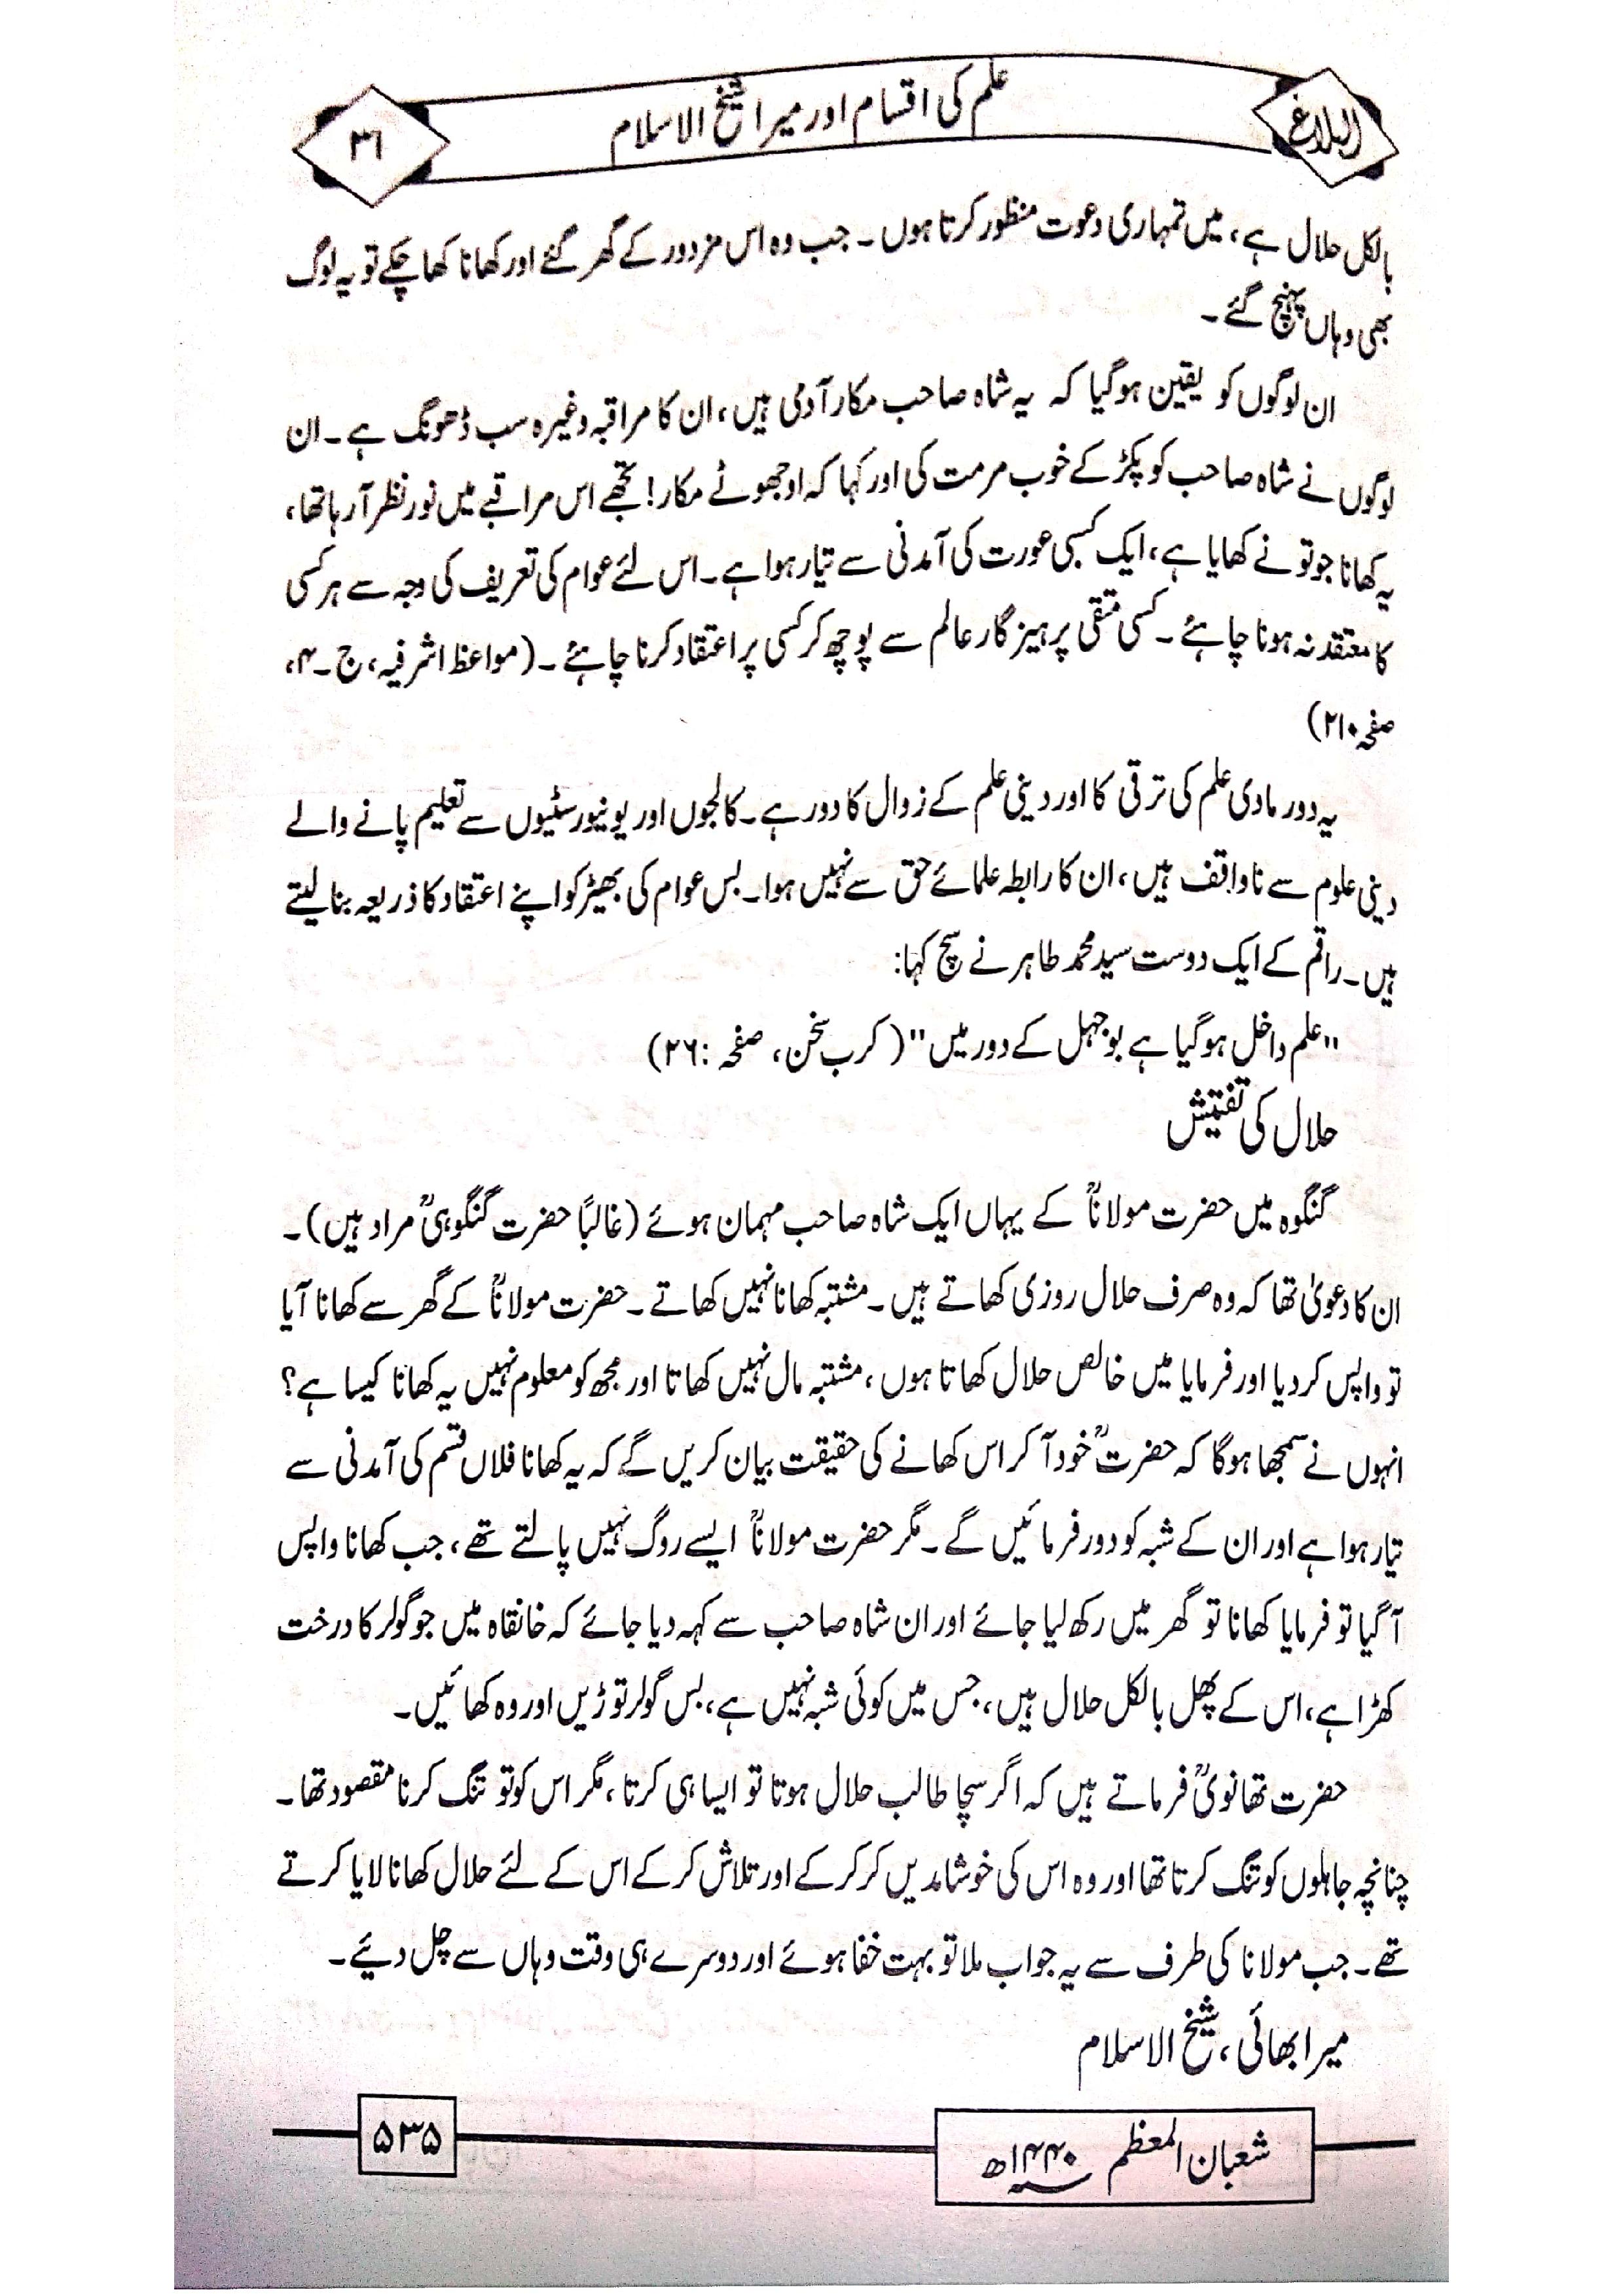 البلاغ
علم کی اقسام اور میرا شیخ الاسلام
۳۶
بالکل حلال ہے، میں تمہاری دعوت منظور کرتا ہوں ۔ جب وہ اس مزدور کے گھر گئے اور کھانا کھا چکے تو یہ لوگ
بھی وہاں پہنچ گئے ۔
ان لوگوں کو یقین ہوگیا کہ یہ شاہ صاحب مکار آدمی ہیں، ان کا مراقبہ وغیرہ سب ڈھونگ ہے ۔ ان
لوگوں نے شاہ صاحب کو پکڑ کے خوب مرمت کی اور کہا کہ او جھوٹے مکار! تجھے اس مراقبے میں نور نظر آرہا تھا،
یہ کھانا جو تو نے کھایا ہے، ایک کسبی عورت کی آمدنی سے تیار ہوا ہے ۔ اس لئے عوام کی تعریف کی وجہ سے ہر کسی
کا معتقد نہ ہونا چاہئے ۔ کسی متقی پرہیز گار عالم سے پوچھ کر کسی پر اعتقاد کرنا چاہئے ۔ (مواعظ اشرفیہ، ج ۔ ۴،
صفحہ ۲۱۰)
یہ دور مادی علم کی ترقی کا اور دینی علم کے زوال کا دور ہے ۔ کالجوں اور یونیورسٹیوں سے تعلیم پانے والے
دینی علوم سے ناواقف ہیں، ان کا رابطہ علمائے حق سے نہیں ہوا ۔ بس عوام کی بھیڑ کو اپنے اعتقاد کا ذریعہ بنا لیتے
ہیں ۔ راقم کے ایک دوست سید محمد طاہر نے سچ کہا:
"علم داخل ہوگیا ہے بوجہل کے دور میں" (کرب سخن، صفحہ :۲۶)
حلال کی تفتیش
گنگوہ میں حضرت مولاناؒ کے یہاں ایک شاہ صاحب مہمان ہوئے (غالباً حضرت گنگوہیؒ مراد ہیں) ۔
ان کا دعویٰ تھا کہ وہ صرف حلال روزی کھاتے ہیں ۔ مشتبہ کھانا نہیں کھاتے ۔ حضرت مولاناؒ کے گھر سے کھانا آیا
تو واپس کردیا اور فرمایا میں خالص حلال کھاتا ہوں، مشتبہ مال نہیں کھاتا اور مجھ کو معلوم نہیں یہ کھانا کیسا ہے؟
انہوں نے سمجھا ہوگا کہ حضرتؒ خود آکر اس کھانے کی حقیقت بیان کریں گے کہ یہ کھانا فلاں قسم کی آمدنی سے
تیار ہوا ہے اور ان کے شبہ کو دور فرمائیں گے ۔ مگر حضرت مولاناؒ ایسے روگ نہیں پالتے تھے، جب کھانا واپس
آگیا تو فرمایا کھانا تو گھر میں رکھ لیا جائے اور ان شاہ صاحب سے کہہ دیا جائے کہ خانقاہ میں جو گولر کا درخت
کھڑا ہے، اس کے پھل بالکل حلال ہیں، جس میں کوئی شبہ نہیں ہے، بس گولر توڑیں اور وہ کھائیں ۔
حضرت تھانویؒ فرماتے ہیں کہ اگر سچا طالب حلال ہوتا تو ایسا ہی کرتا، مگر اس کو تو تنگ کرنا مقصود تھا ۔
چنانچہ جاہلوں کو تنگ کرتا تھا اور وہ اس کی خوشامدیں کر کر کے اور تلاش کر کے اس کے لئے حلال کھانا لایا کرتے
تھے ۔ جب مولانا کی طرف سے یہ جواب ملا تو بہت خفا ہوئے اور دوسرے ہی وقت وہاں سے چل دیئے ۔
میرا بھائی، شیخ الاسلام
شعبان المعظم ۱۴۴۰ھ
۵۳۵